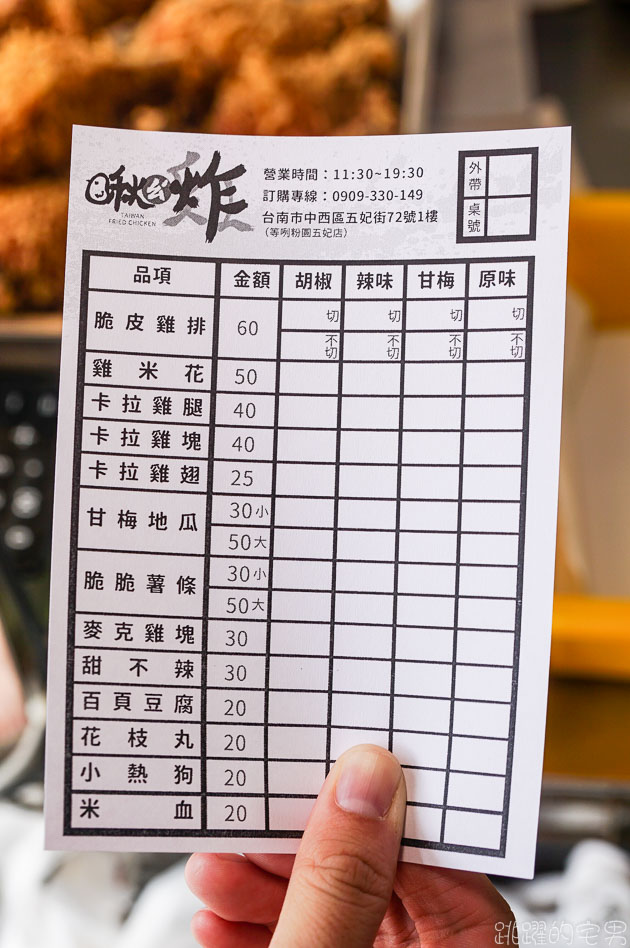 炸雞
TAIWAN
FRIED CHICKEN
營業時間：11:30~19:30
訂購專線：0909-330-149
台南市中西區五妃街72號1樓
（等咧粉圓五妃店）
外帶
桌號
品項 金額 胡椒 辣味 甘梅 原味
脆皮雞排 60 切 切 切 切
不切 不切 不切 不切
雞米花 50
卡拉雞腿 40
卡拉雞塊 40
卡拉雞翅 25
甘梅地瓜 30小
50大
脆脆薯條 30小
50大
麥克雞塊 30
甜不辣 30
百頁豆腐 20
花枝丸 20
小熱狗 20
米血 20
跳躍的宅男